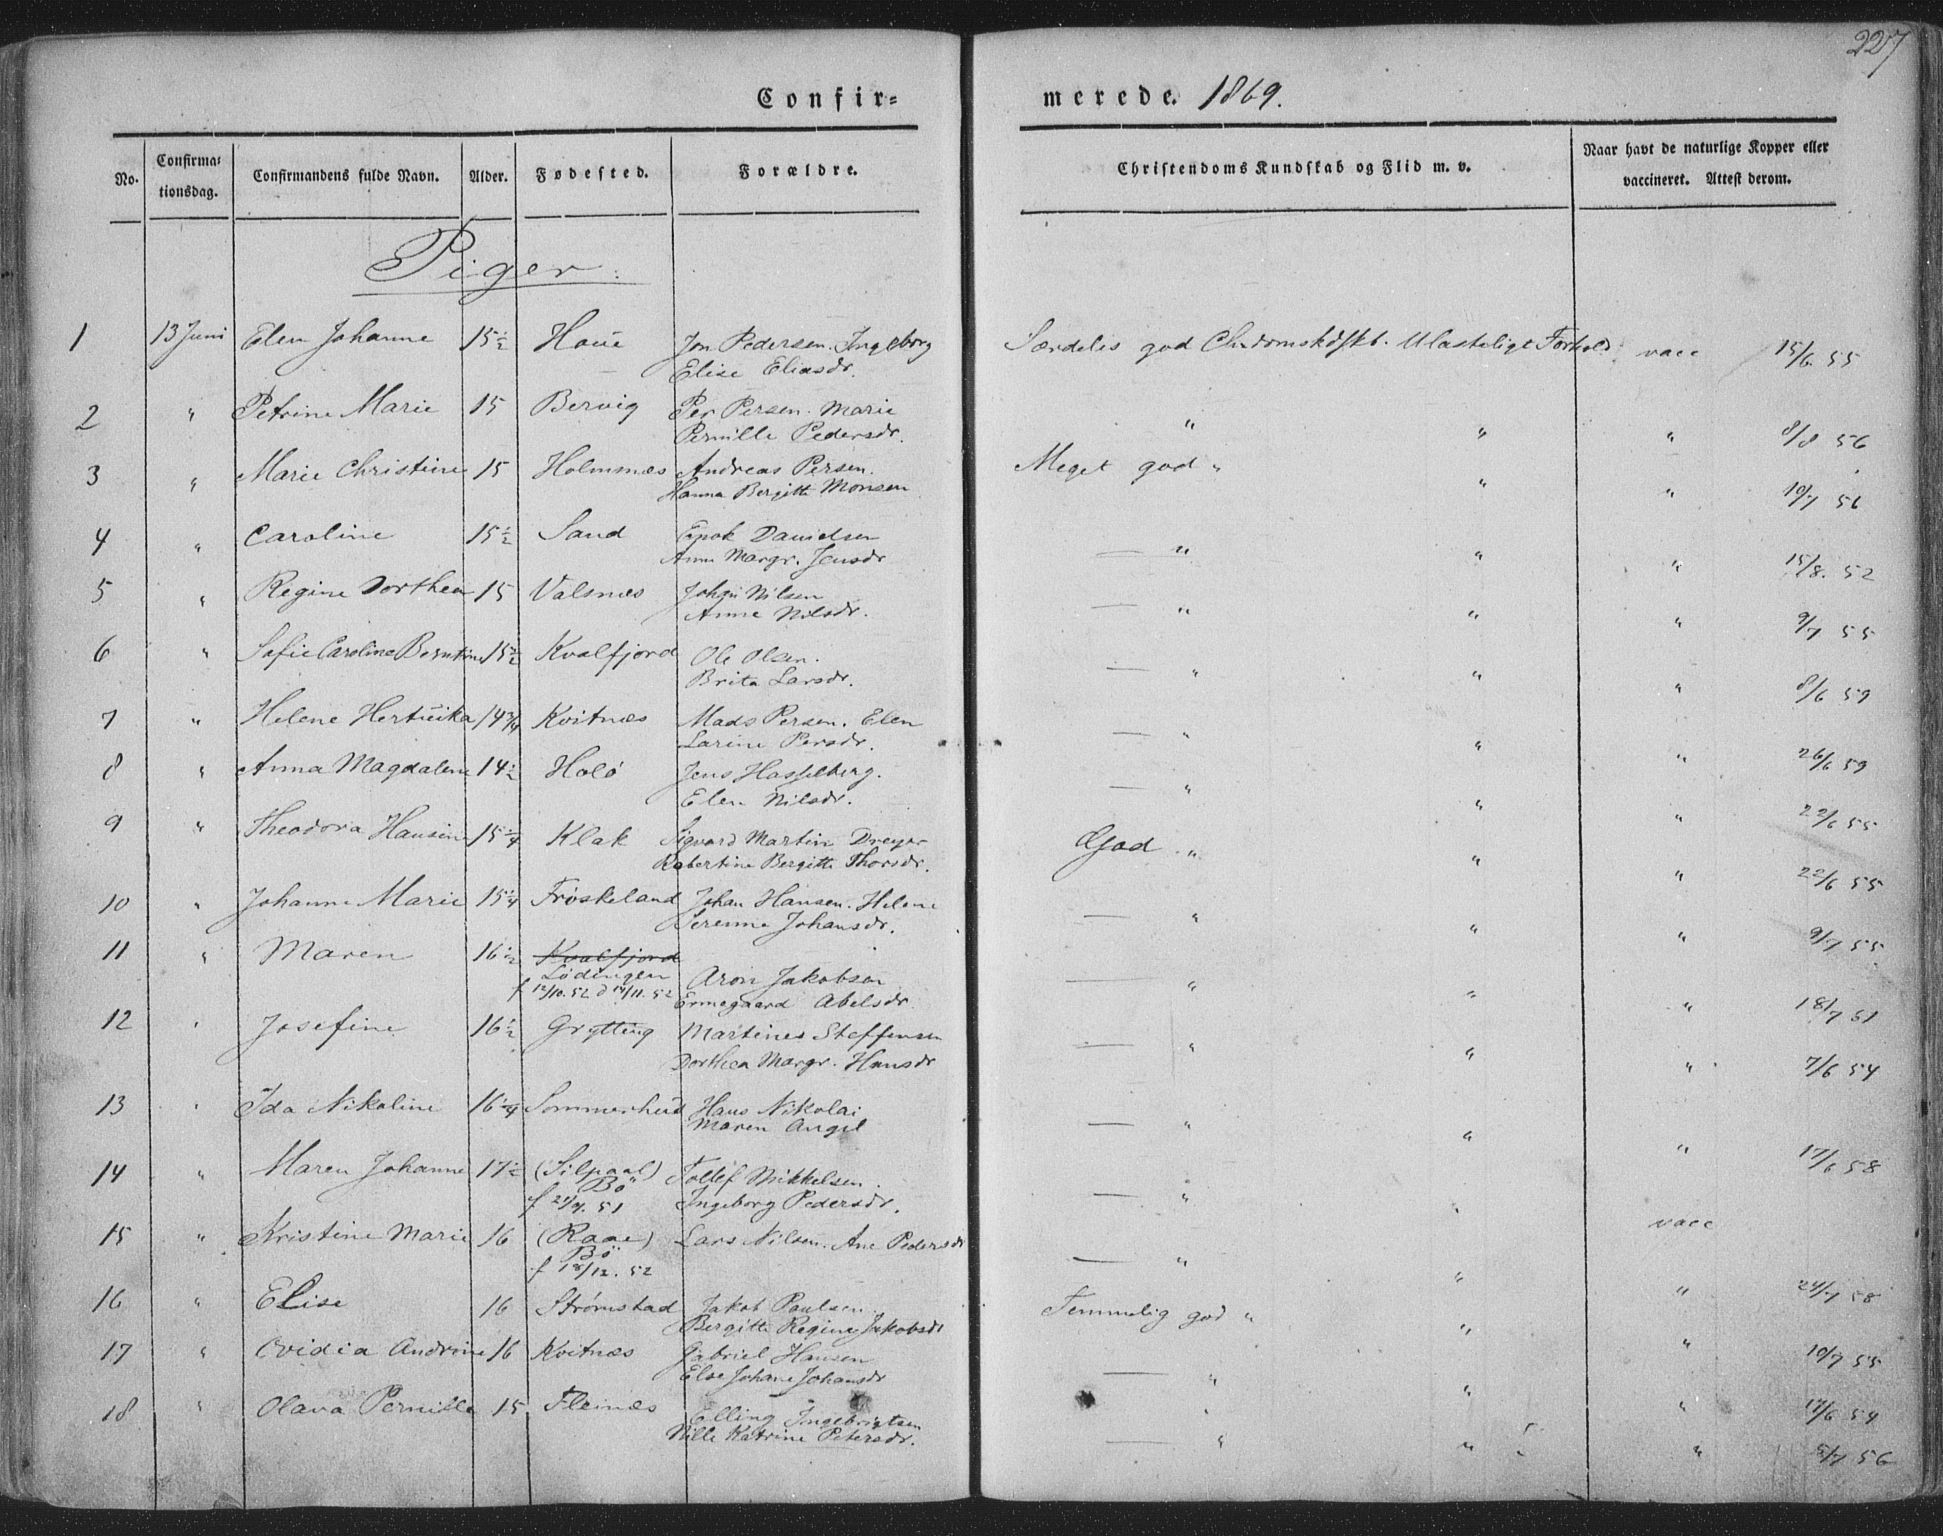 227
Confir-
merede. 1869.
No.
Confirma-
tionsdag.
Confirmandens fulde Navn.
Alder.
Fødested.
Forældre.
Christendoms Kundskab og Flid m. v.
Naar havt de naturlige Kopper eller
vaccineret. Attest derom.
Piger.
1 13 Juni Elen Johanne 15 1/2 Houe Jon Pedersen. Ingeborg Særdeles god Chrdomskdskb. Ulasteligt Forhold vacc 15/6 55
Elise Eliasdr.
2 " Petrine Marie 15 Bervig Per Persen. Marie " " " 8/8 56
Pernille Pedersdr.
3 " Marie Christine 15 Holmnæs Andreas Persen. Meget god " " " 10/7 56
Hanna Bergitte Monsen
4 " Caroline 15 1/2 Sand Danielsen — " " " 15/8. 52
Anne Margr. Jensdr
5 " Regine Dorthea 15 Valsnæs Nilsen — " " " 9/7 55
Anne Nilsdr.
6 " Sofie Caroline Berntine 15 1/2 Kvalfjord Ole Olsen. — " " " 8/6 59
Brita Larsdr.
7 " Helene Hertvika 14 3/4 Kvitnæs Mads Persen. Elen — " " " 26/6 59
Larine Persdr.
8 " Anna Magdalene 14 1/2 Holø Jens Hasselberg. — " " " 22/6 55
Elen Nilsdr.
9 " Theodora Hansine 15 1/4 Klak Sigvard Martin Dreyer God " " " 22/6 55
Robertine Bergitte Thorsdr.
10 " Johanne Marie 15 1/4 Frøskeland Johan Hansen. Helene — " " " 9/7 55
Serenne Johansdr.
11 " Maren 16 1/2 Kvalfjord — " " " 18/7 61
Lødingen Aron Jakobsen
f 12/10. 52 d 14/11. 52 Ermegaard Abelsdr.
12 " Josefine 16 1/2 Grytting Martines Steffensen — " " " 7/6 54
Dorthea Margr. Hansdr
13 " Ida Nikoline 16 1/4 Sommerhus Hans Nikolai — " " " 17/6 58
Maren Angel
14 " Maren Johanne 17 1/2 (Silpaal) Tollef Mikkelsen. — " " vacc
Bø Ingeborg Pedersdr.
f 21/4. 51
15 " Kristine Marie 16 (Raae) Lars Nilsen. Ane Pedersdr — " " " 24/7 58
Bø
f 18/12. 52
16 " Elise 16 Strømstad Jakob Paulsen. Temmelig god " " " 10/7 55
Bergitte Regine Jakobsdr
17 " Ovidia Andrine 16 Kvitnæs Gabriel Hansen — " " " 17/6 54
Else Johane Johansdr
18 " Olava Pernille 15 Fleinæs Elling Ingebrigtsen — " " " 5/7 56
Nille Katrine Petersdr.